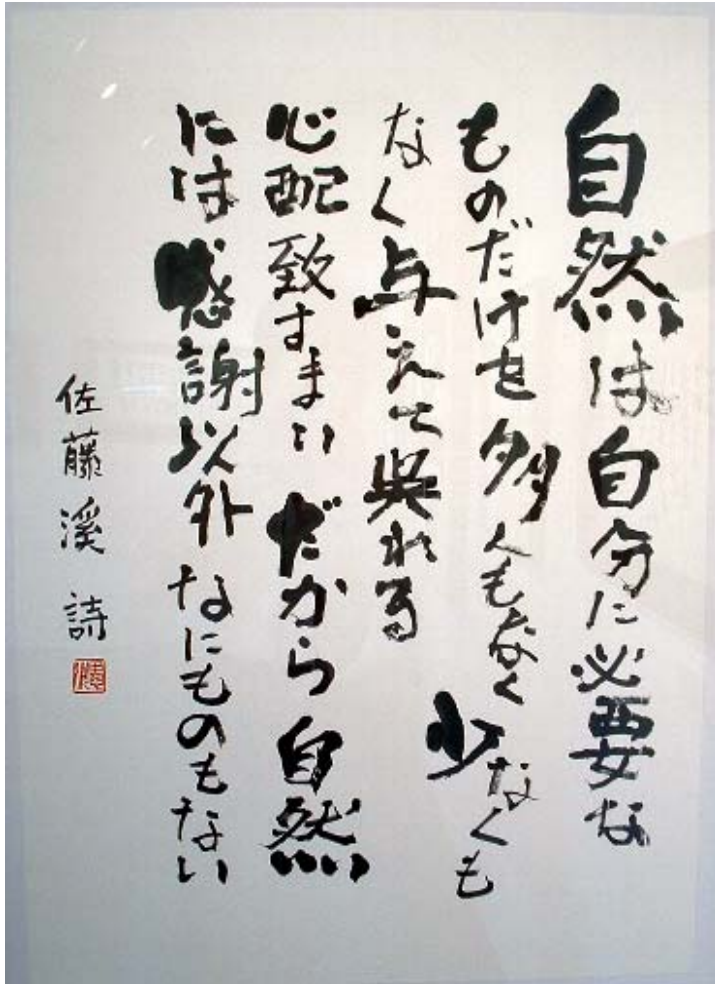 自然は自分に必要な
ものだけを多くもなく少なくも
なく与えて呉れる
心配致すまいだから自然
には感謝以外なにものもない
佐藤溪詩